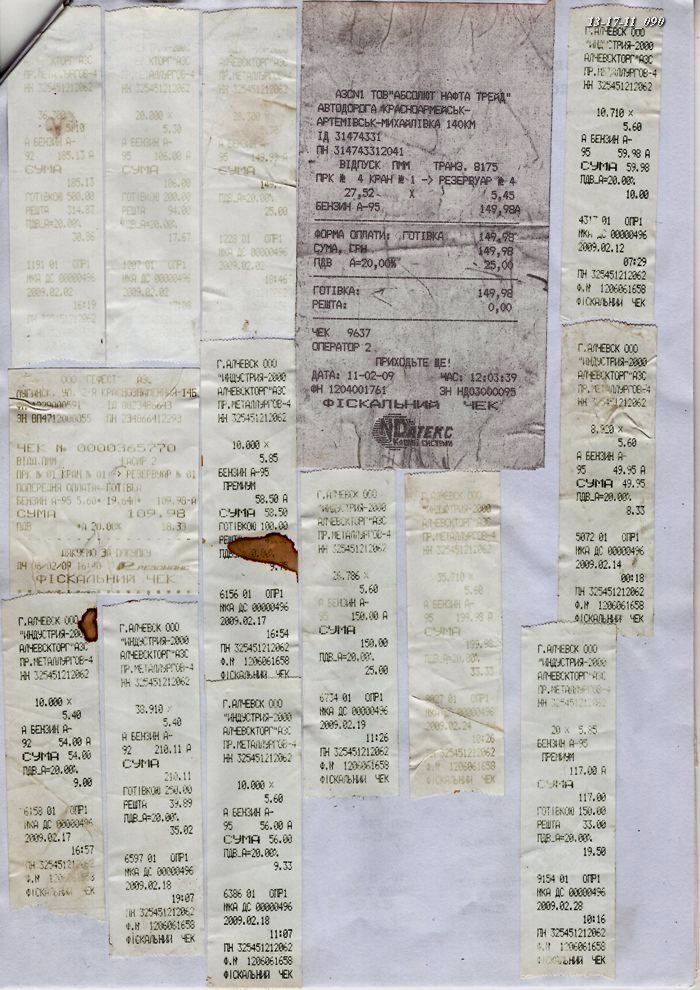 13-17-11_090
КТОРГ"АЗС
ПР.МЕТАЛЛУРГОВ-4
НН 325451212062
А БЕНЗИН А-
92 185.13 А
СУМА
185.13
ГОТІВКОЮ 500.00
РЕШТА 314.87
ПДВ_А=20.00%
1191 01 ОПР1
МКА ДС 00000496
2009.02.02
16:19
ПН 325451212062
ФІСКАЛЬНИЙ ЧЕК
АЛЧЕВСКТОРГ"АЗС
ПР.МЕТАЛЛУРГОВ-4
НН 325451212062
20.000 ×
5.30
А БЕНЗИН А-
92 106.00 А
СУМА
106.00
ГОТІВКОЮ 200.00
РЕШТА 94.00
ПДВ_А=20.00%
17.67
1207 01 ОПР1
МКА ДС 00000496
2009.02.02
ПН 325451212062
ФІСКАЛЬНИЙ ЧЕК
АЛЧЕВСКТОРГ"АЗС
ПР.МЕТАЛЛУРГОВ-4
НН 325451212062
А БЕНЗИН А-
СУМА
ПДВ_А=20.00%
25.00
1228 01 ОПР1
МКА ДС 00000496
18:46
ПН 325451212062
ФІСКАЛЬНИЙ ЧЕК
АЗСN1 ТОВ"АБСОЛЮТ НАФТА ТРЕЙД"
АВТОДОРОГА КРАСНОАРМЕЙСЬК-
АРТЕМІВСЬК-МИХАЙЛІВКА 140КМ
ІД 31474331
ПН 314743312041
ВІДПУСК ПММ ТРАНЗ. 8175
ПРК № 4 КРАН № 1 -> РЕЗЕРВУАР № 4
27,52 X 5,45
БЕНЗИН А-95 149,98А
ФОРМА ОПЛАТИ: ГОТІВКА 149,98
СУМА, ГРН 149,98
ПДВ А=20,00% 25,00
ГОТІВКА: 149,98
РЕШТА: 0,00
ЧЕК 9637
ОПЕРАТОР 2
ПРИХОДЬТЕ ЩЕ!
ДАТА: 11-02-09 ЧАС: 12:03:39
ФН 1204001761 ЗН НД03000095
ФІСКАЛЬНИЙ ЧЕК
DATEKC
Г.АЛЧЕВСК ООО
"ИНДУСТРИЯ-2000
АЛЧЕВСКТОРГ"АЗС
ПР.МЕТАЛЛУРГОВ-4
НН 325451212062
10.710 ×
5.60
А БЕНЗИН А-
95 59.98 А
СУМА 59.98
ПДВ_А=20.00%
10.00
4317 01 ОПР1
МКА ДС 00000496
2009.02.12
07:29
ПН 325451212062
Ф.№ 1206061658
ФІСКАЛЬНИЙ ЧЕК
ООО ГЕФЕСТ АЗС
ПН 234866412293
ЧЕК № 0000365770
ВІДП.ПММ КАСИР 2
ПРК № 01 КРАН № 01 -> РЕЗЕРВУАР № 01
ПОПЕРЕДНЯ ОПЛАТА ГОТІВКА
БЕНЗИН А-95 5.60× 19.64Л 109.98-А
СУМА 109.98
ПДВ А 20.00% 18.33
ДЯКУЄМО ЗА ПОКУПКУ
РЕЗОНАНС
ФІСКАЛЬНИЙ ЧЕК
Г.АЛЧЕВСК ООО
"ИНДУСТРИЯ-2000
АЛЧЕВСКТОРГ"АЗС
ПР.МЕТАЛЛУРГОВ-4
НН 325451212062
10.000 ×
5.85
БЕНЗИН А-95
ПРЕМИУМ
58.50 А
СУМА 58.50
ГОТІВКОЮ 100.00
6156 01 ОПР1
МКА ДС 00000496
2009.02.17
16:54
ПН 325451212062
Ф.№ 1206061658
ФІСКАЛЬНИЙ ЧЕК
Г.АЛЧЕВСК ООО
"ИНДУСТРИЯ-2000
АЛЧЕВСКТОРГ"АЗС
ПР.МЕТАЛЛУРГОВ-4
НН 325451212062
8.920 ×
5.60
А БЕНЗИН А-
95 49.95 А
СУМА 49.95
ПДВ_А=20.00%
8.33
5072 01 ОПР1
МКА ДС 00000496
2009.02.14
00:18
ПН 325451212062
Ф.№ 1206061658
ФІСКАЛЬНИЙ ЧЕК
Г.АЛЧЕВСК ООО
"ИНДУСТРИЯ-2000
АЛЧЕВСКТОРГ"АЗС
ПР.МЕТАЛЛУРГОВ-4
НН 325451212062
26.786 ×
5.60
А БЕНЗИН А-
95 150.00 А
СУМА
150.00
ПДВ_А=20.00%
25.00
6734 01 ОПР1
МКА ДС 00000496
2009.02.19
11:26
ПН 325451212062
Ф.№ 1206061658
ФІСКАЛЬНИЙ ЧЕК
Г.АЛЧЕВСК ООО
"ИНДУСТРИЯ-2000
АЛЧЕВСКТОРГ"АЗС
ПР.МЕТАЛЛУРГОВ-4
НН 325451212062
35.710 ×
5.60
А БЕНЗИН А-
95 199.98 А
СУМА
199.98
ПДВ_А=20.00%
33.33
МКА ДС 00000496
2009.02.24
10:26
ПН 325451212062
Ф.№ 1206061658
ФІСКАЛЬНИЙ ЧЕК
Г.АЛЧЕВСК ООО
АЛЧЕВСКТОРГ"АЗС
ПР.МЕТАЛЛУРГОВ-4
НН 325451212062
10.000 ×
5.40
А БЕНЗИН А-
92 54.00 А
СУМА 54.00
ПДВ_А=20.00%
9.00
6158 01 ОПР1
МКА ДС 00000496
2009.02.17
16:57
ПН 325451212062
ФІСКАЛЬНИЙ ЧЕК
Г.АЛЧЕВСК ООО
"ИНДУСТРИЯ-2000
АЛЧЕВСКТОРГ"АЗС
ПР.МЕТАЛЛУРГОВ-4
НН 325451212062
38.910 ×
5.40
А БЕНЗИН А-
92 210.11 А
СУМА
210.11
ГОТІВКОЮ 250.00
РЕШТА 39.89
ПДВ_А=20.00%
35.02
6597 01 ОПР1
МКА ДС 00000496
2009.02.18
19:07
ПН 325451212062
Ф.№ 1206061658
ФІСКАЛЬНИЙ ЧЕК
Г.АЛЧЕВСК ООО
"ИНДУСТРИЯ-2000
АЛЧЕВСКТОРГ"АЗС
ПР.МЕТАЛЛУРГОВ-4
НН 325451212062
10.000 ×
5.60
А БЕНЗИН А-
95 56.00 А
СУМА 56.00
ПДВ_А=20.00%
9.33
6386 01 ОПР1
МКА ДС 00000496
2009.02.18
11:07
ПН 325451212062
Ф.№ 1206061658
ФІСКАЛЬНИЙ ЧЕК
Г.АЛЧЕВСК ООО
"ИНДУСТРИЯ-2000
АЛЧЕВСКТОРГ"АЗС
ПР.МЕТАЛЛУРГОВ-4
НН 325451212062
20 × 5.85
БЕНЗИН А-95
ПРЕМИУМ
117.00 А
СУМА
117.00
ГОТІВКОЮ 150.00
РЕШТА 33.00
ПДВ_А=20.00%
19.50
9154 01 ОПР1
МКА ДС 00000496
2009.02.28
10:16
ПН 325451212062
Ф.№ 1206061658
ФІСКАЛЬНИЙ ЧЕК